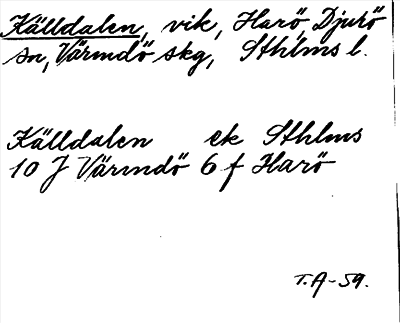 Källdalen, vik, Harö, Djurö
sn, Värmdö skg, Sthlms l.
Källdalen ek Sthlms
10 J Värmdö 6 f Harö
T.A-59.